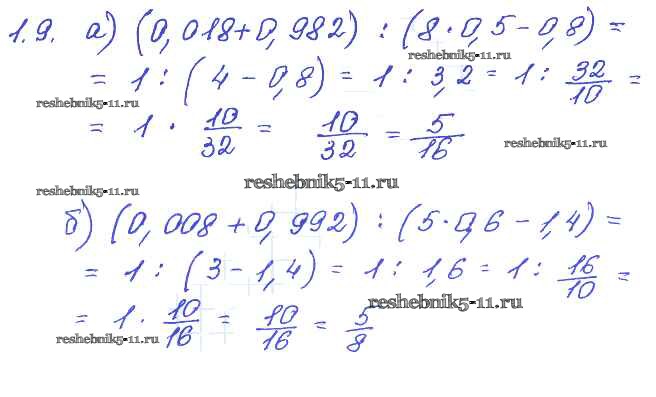 1.9. а) (0,018+0,982) : (8·0,5-0,8) =
reshebnik5-11.ru
= 1 : (4 - 0,8) = 1 : 3,2 = 1 : 32/10 =
reshebnik5-11.ru
= 1 · 10/32 = 10/32 = 5/16
reshebnik5-11.ru
reshebnik5-11.ru
reshebnik5-11.ru
б) (0,008 + 0,992) : (5·0,6 - 1,4) =
= 1 : (3 - 1,4) = 1 : 1,6 = 1 : 16/10 =
reshebnik5-11.ru
= 1 · 10/16 = 10/16 = 5/8
reshebnik5-11.ru